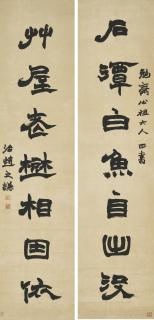 石潭白魚自出沒
勉齋公祖大人
艸屋老相因依
治趙之謙